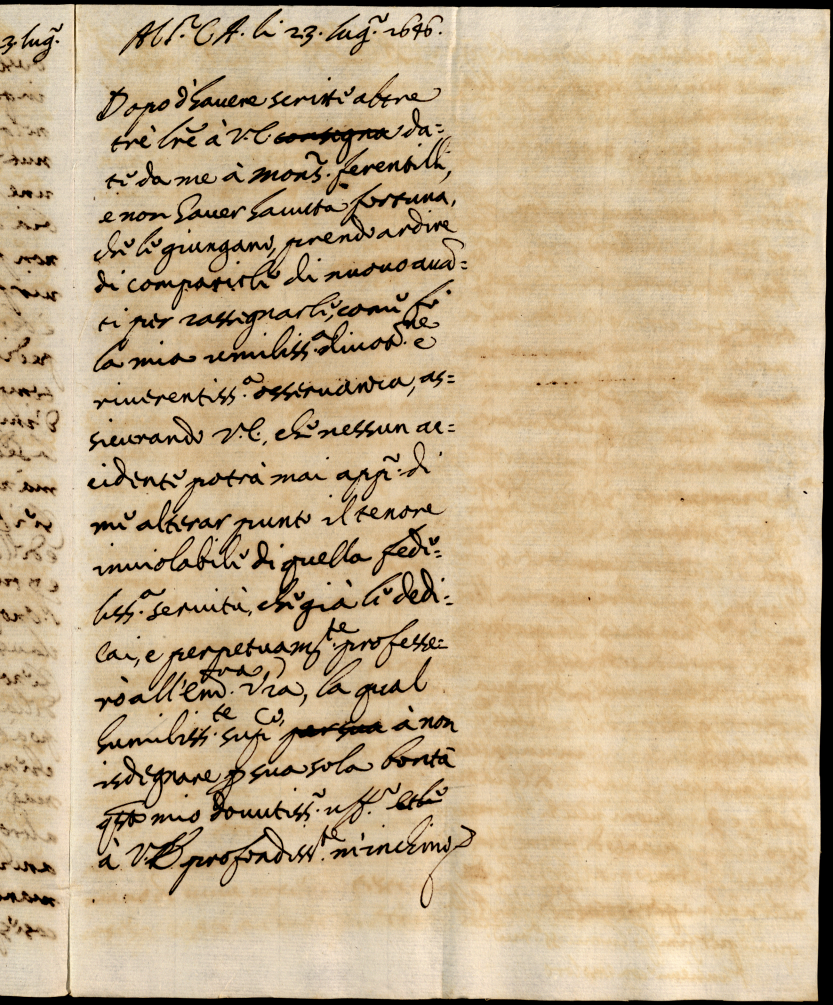 Al S.r C. A. li 23. lug.º 1646.
Dopo d'havere scritte altre
tre l're à V.E. consegna da=
te da me à Mons.r ferentilli,
e non haver havuta fortuna,
che le giungano, prendo ardire
di comparirle di nuovo avan=
ti per rassegnarle, come fò
la mia umiliss.a divot.ne e
riverentiss.a osservanza, as=
sicurando V.E., che nessun ac=
cidente potrà mai app.o di
me alterar punto il tenore
inviolabile di quella fede=
liss.a servitù, che già le dedi=
cai, e perpetuam.te professe=
rò all'Em.za V'ra, la qual
humiliss.te sup.co per sua à non
isdegnare p sua sola bontà
q'sto mio dovutiss.o uff.o
à V.E. profondiss.te m'inchino
3 lug.º